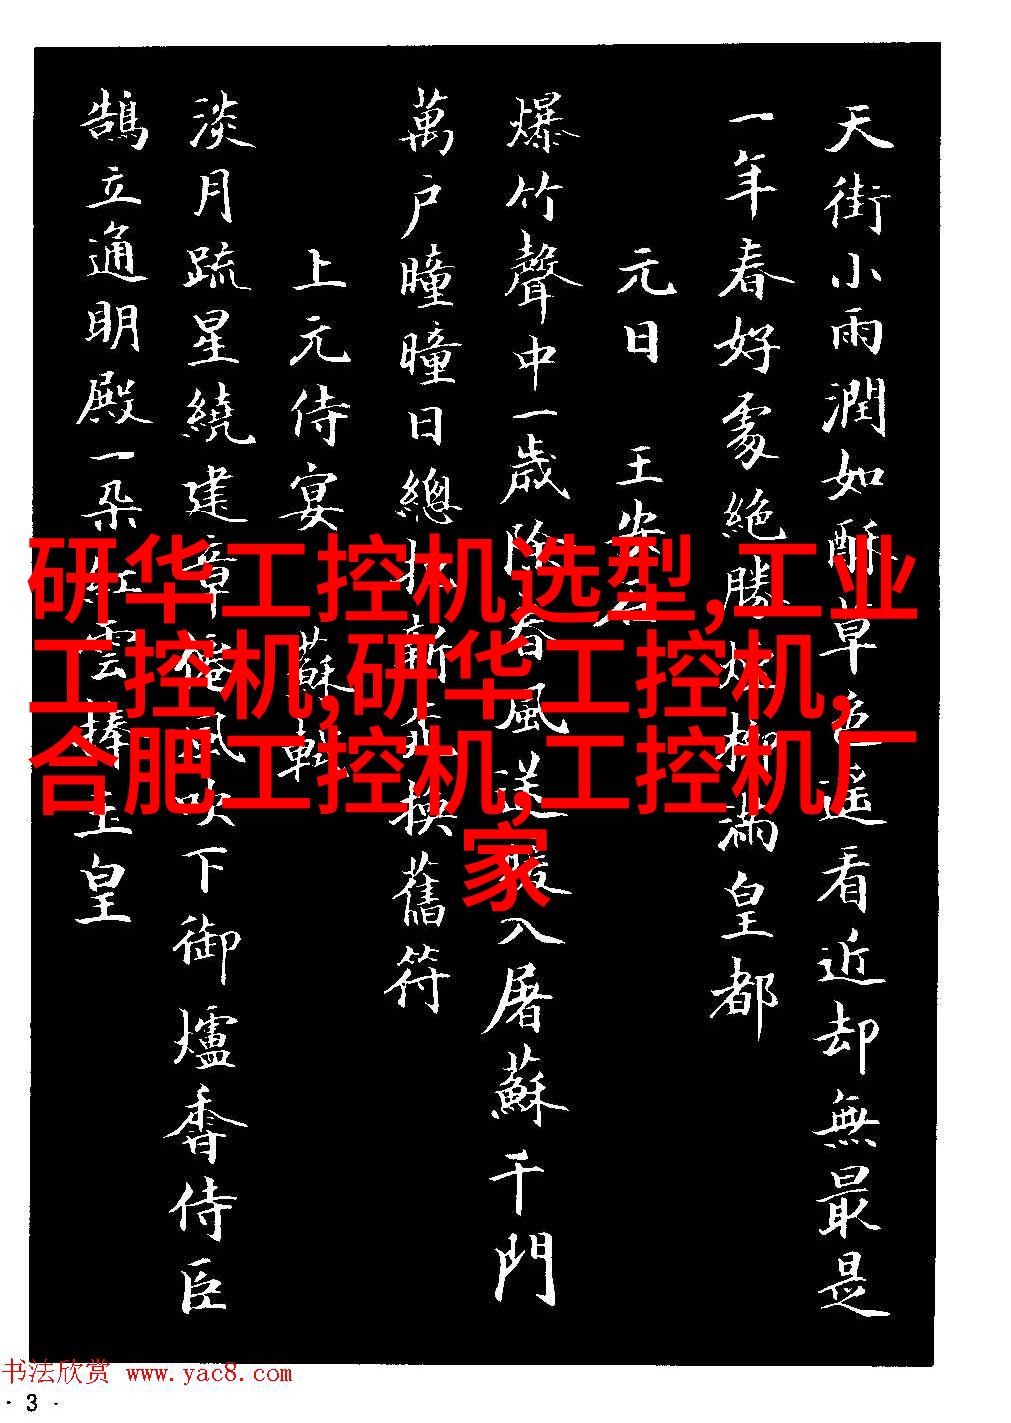 天街小雨潤如酥草色遥看近却無最是
一年春好處絶勝烟柳滿皇都
元日 王安石
爆竹聲中一歲除春風送暖入屠蘇千門
萬户曈曈日總把新桃換舊符
上元侍宴 蘇軾
淡月疏星繞建章僊風吹下御爐香侍臣
鵠立通明殿一朵紅雲捧玉皇
研华工控机选型,工业
工控机,研华工控机,
合肥工控机,工控机厂
家
书法欣赏 www.yac8.com
· 3 ·